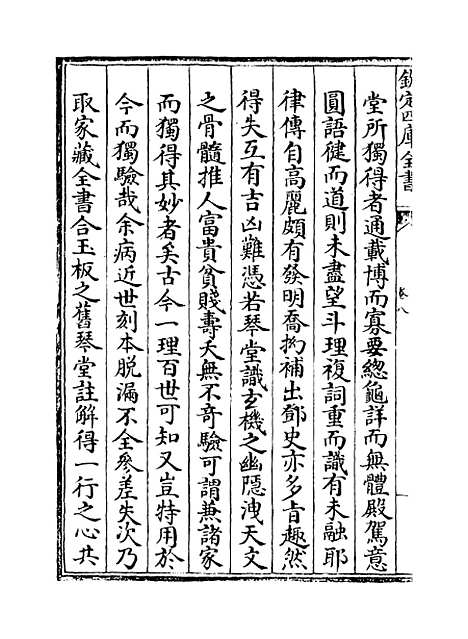 欽定四庫全書
卷八
堂所獨得者通載博而寡要總龜詳而無體殿駕意
圓語健而道則未盡望斗理複詞重而識有未融耶
律傳自高麗頗有發明喬拗補出鄧史亦多旨趣然
得失互有吉凶難憑若琴堂識玄機之幽隱洩天文
之骨髓推人富貴貧賤壽夭無不奇驗可謂兼諸家
而獨得其妙者矣古今一理百世可知又豈特用於
今而獨驗哉余病近世刻本脫漏不全參差失次乃
取家藏全書合玉板之舊琴堂註解得一行之心共